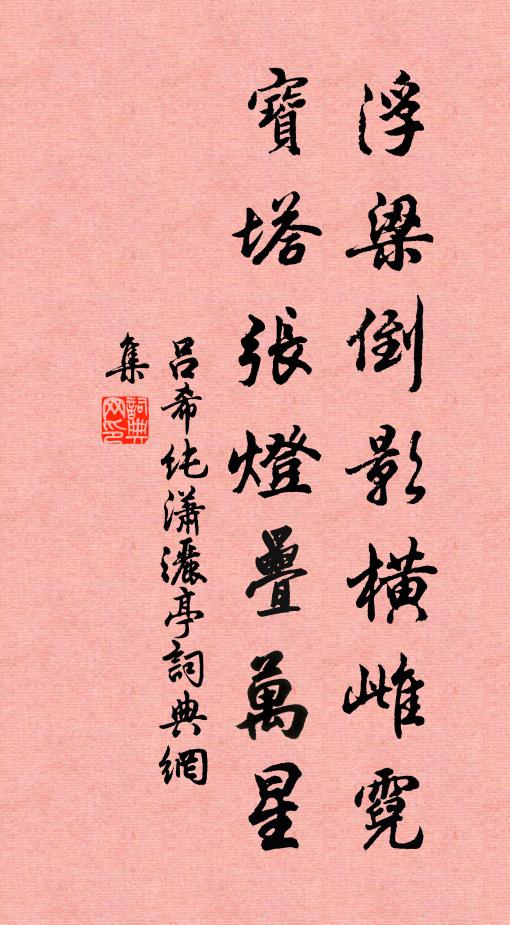 浮梁倒影橫雌霓
寶塔張燈疊萬星
呂希純瀟灑亭詞典網
集
詞典網印